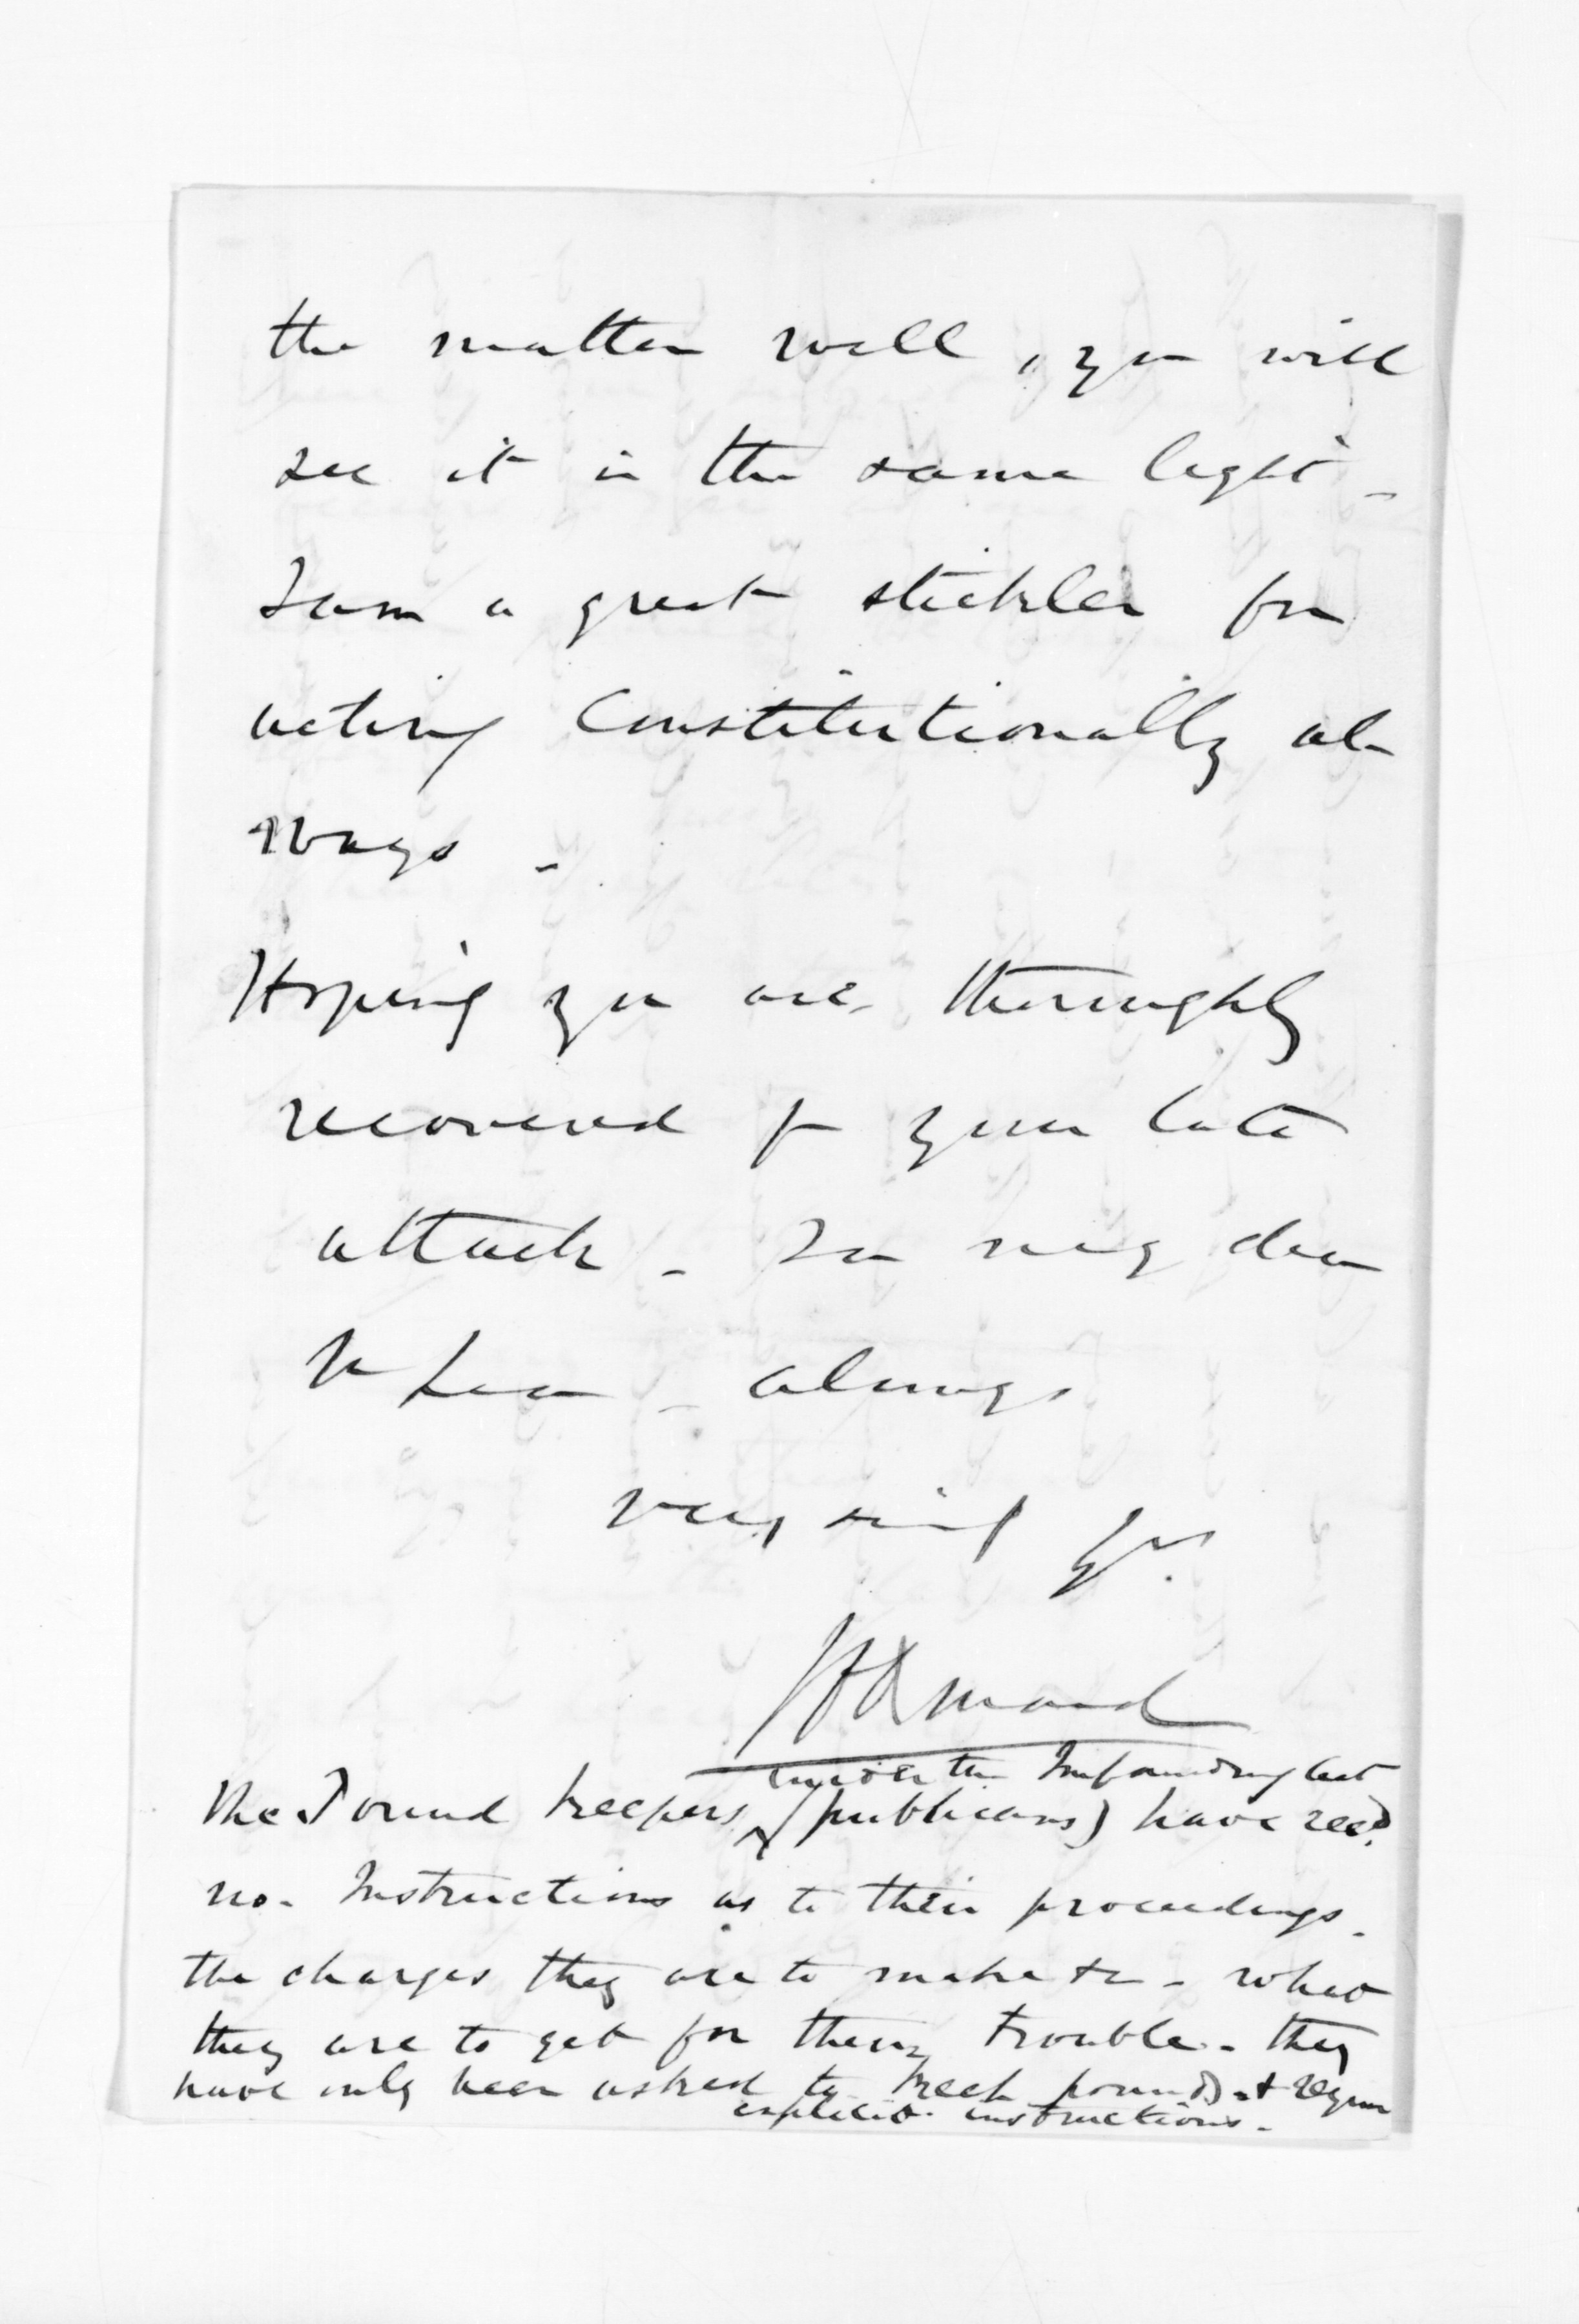 the matter well, you will
see it in the same light -
I am a great stickler for
acting Constitutionally al-
ways -
Hoping you are thoroughly
recovered fr your late
attack - I am my dear
McLean - always
very sincy yrs.
under the Impounding Act
The Pound keepers, (publicans) have recd.
no. Instructions as to their proceedings -
the charges they are to make &c - what
they are to get for their trouble - they
have only been asked to keep pounds - & require
explicit instructions -